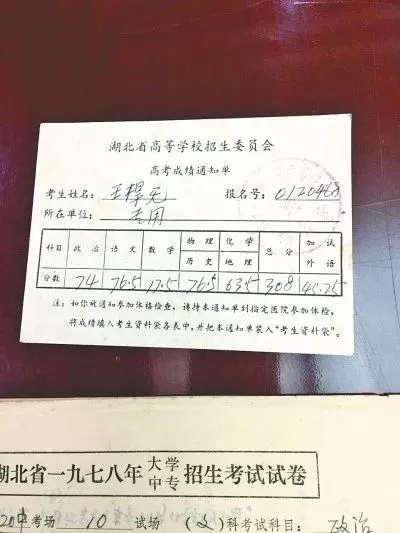 湖北省高等学校招生委员会
高考成绩通知单
考生姓名: 王捍 报名号: 0120468
所在单位:
科目 政治 语文 数学 物理 化学 总分 加试
历史 地理 外语
分数 74 76.5 17.5 76.5 63.5 308
注: 如你被通知参加体格检查, 请持本通知单到指定医院参加体检,
将成绩填入考生资料袋各表中, 并把本通知单装入“考生资料袋”。
湖北省一九七八年 大学 招生考试试卷
中专
20中考场 10 试场 (文)科考试科目: 政治